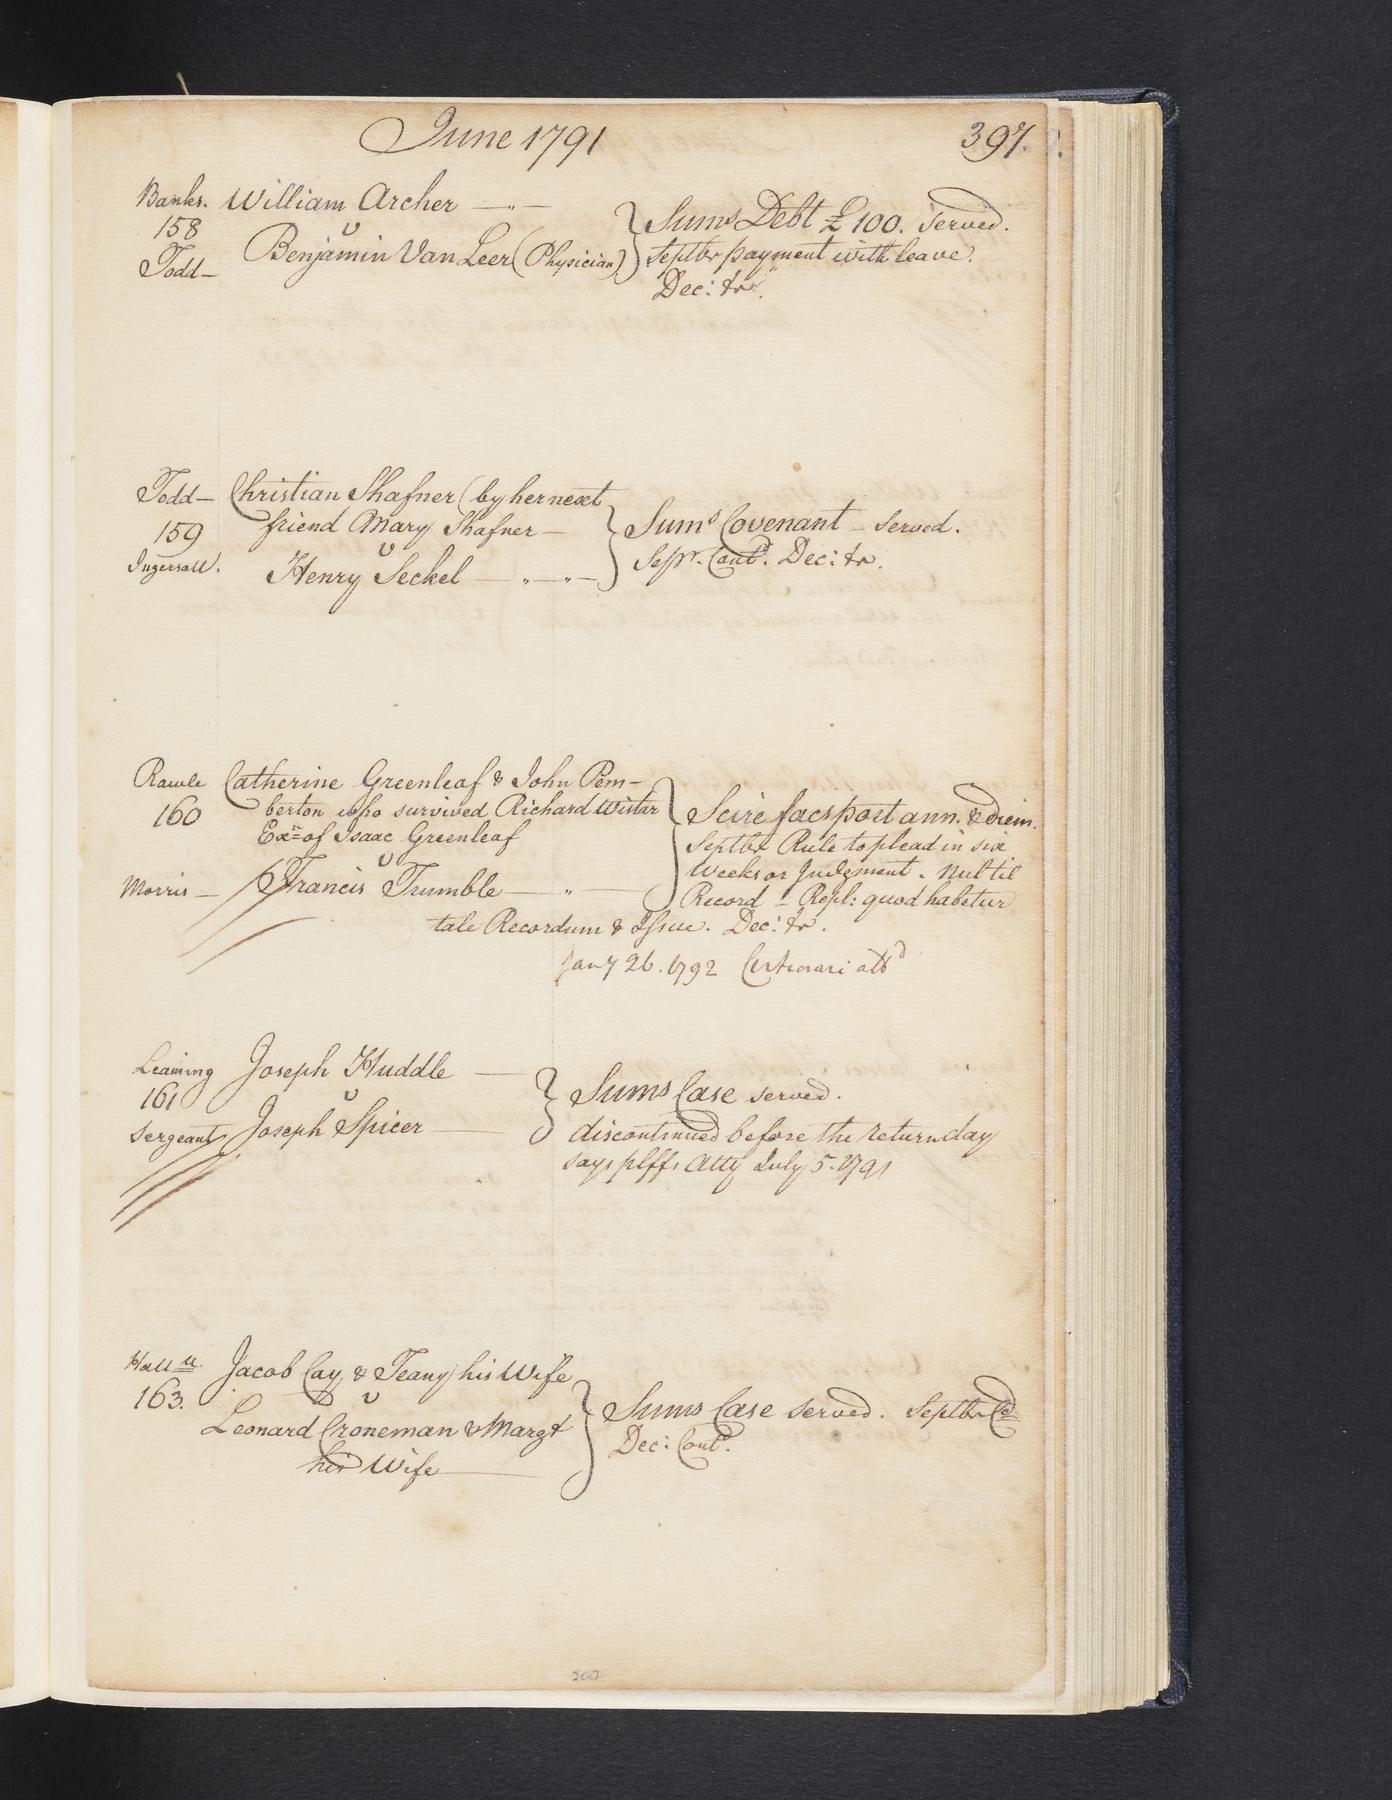 June 1791
397.
Banks. William Archer
158 v
Todd Benjamin Van Leer (Physician)
Sums Debt £100. served.
Septbr payment with leave.
Dec: tr.
Todd Christian Shafner (by her next
friend Mary Shafner
159 v
Ingersoll. Henry Seckel
Sums Covenant served.
Sepr. Contd. Dec: tr.
Rawle Catherine Greenleaf & John Pem-
160 berton who survived Richard Wistar
Exrs of Isaac Greenleaf
v
Morris Francis Trumble
Scire facs post ann. & diem.
Septbr Rule to plead in six
weeks or Judgment. Nul til
Record - Repl: quod habetur
tale Recordum & Issue. Dec: tr.
Jany 26. 1792 Certiorari alld
Leaming Joseph Huddle
161 v
Sergeant Joseph Spicer
Sums Case served.
discontinued before the return day
says plffs Atty July 5. 1791
Hallu. Jacob Cay & Teany his Wife
163. v
Leonard Croneman & Margt
his Wife
Sums Case served. Septbr Cd
Dec: Contd.
200